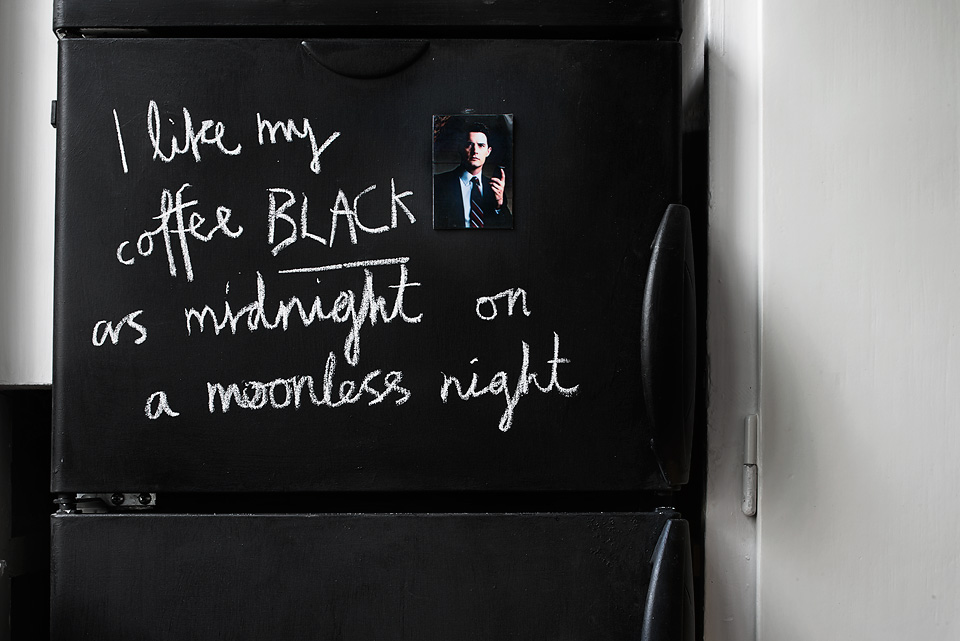 I like my
coffee BLACK
as midnight on
a moonless night